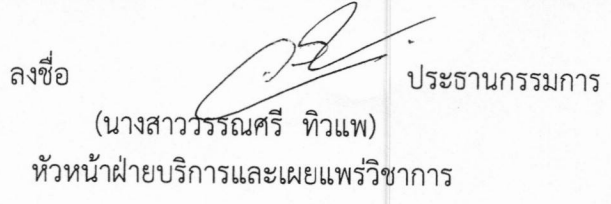 ลงชื่อ ประธานกรรมการ
(นางสาววรรณศรี ทิวแพ)
หัวหน้าฝ่ายบริการและเผยแพร่วิชาการ